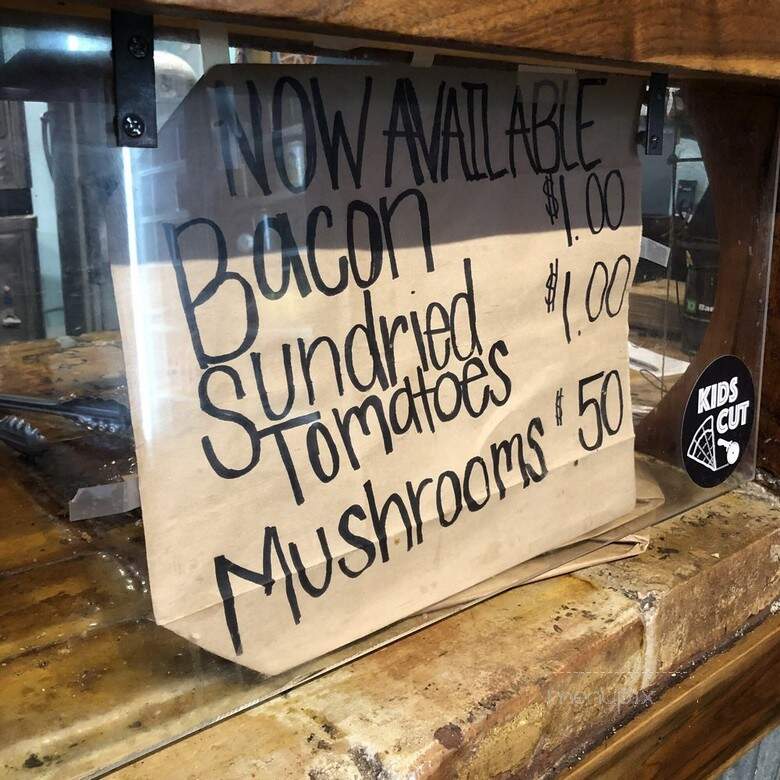 NOW AVAILABLE
Bacon $1.00
Sundried $1.00
Tomatoes
Mushrooms $50
KIDS
CUT
menupix